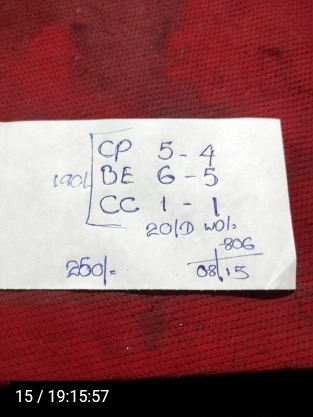 CP 5-4
190/ BE 6-5
CC 1-1
20/D
-806
250/= 08/15
15 / 19:15:57